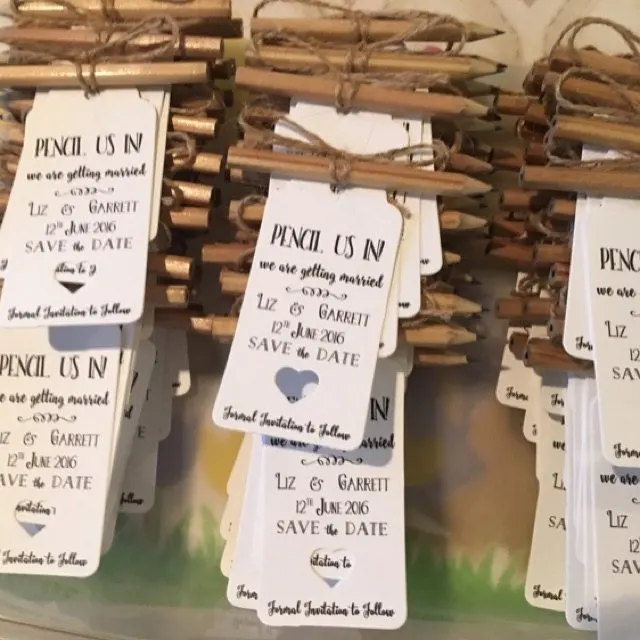 PENCIL US IN!
we are getting married
LIZ & GARRETT
12TH JUNE 2016
SAVE the DATE
itation to
PENCIL US IN!
e are getting married
IZ & GARRETT
12TH JUNE 2016
SAVE the DATE
Invitation to Follow
PENCIL US IN!
we are getting married
LIZ & GARRETT
12TH JUNE 2016
SAVE the DATE
Formal Invitation to Follow
IN!
married
LIZ & GARRETT
12TH JUNE 2016
SAVE the DATE
itation to
Formal Invitation to Follow
PENC
we are
LIZ
12
SAVE
Formal
we are
LIZ
12
SAVE
Formal Invitation to Follow